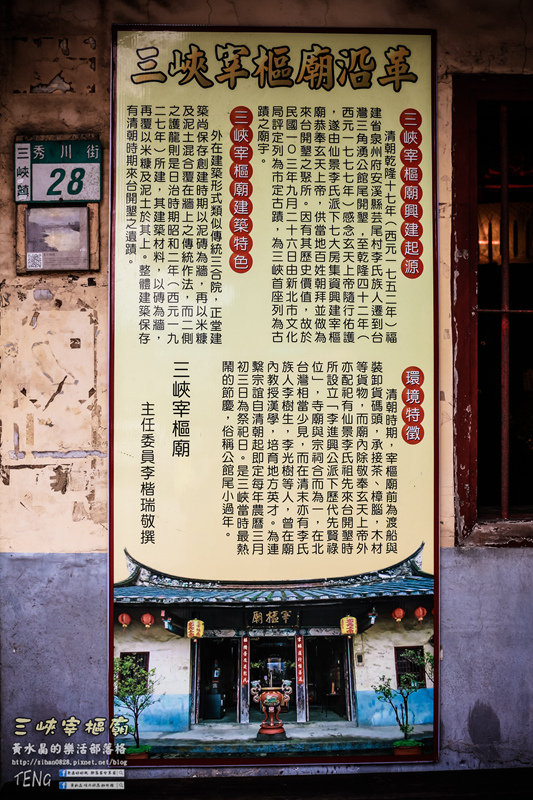 三峽宰樞廟沿革
三峽宰樞廟興建起源
清朝乾隆十七年（西元一七五二年）福
建省泉州府安溪縣芸尾村李氏族人遷到台
灣三角湧公館尾開墾，至乾隆四十二年（
西元一七七七年）感念玄天上帝隨行佑護
，遂由仙景李氏派下七大房集資興建宰樞
廟恭奉玄天上帝，供當地百姓朝拜並做為
來台開墾之聚所。因有其歷史價值，故於
民國一０三年九月二十六日由新北市文化
局評定列為市定古蹟，為三峽首座列為古
蹟之廟宇。
三峽宰樞廟建築特色
外在建築形式類似傳統三合院，正堂建
築尚保存創建時期以泥磚為牆，再以米糠
及泥土混合覆在牆上之傳統作法，而二側
之護龍則是日治時期昭和二年（西元一九
二七年）所建，其建築材料，以磚為牆，
再覆以米糠及泥土於其上。整體建築保存
有清朝時期來台開墾之遺蹟。
環境特徵
清朝時期，宰樞廟前為渡船與
裝卸貨碼頭，承接茶、樟腦，木材
等貨物，而廟內除敬奉玄天上帝外
亦配祀有仙景李氏祖先來台開墾時
所設立—李進興公派下歷代先賢祿
位」，寺廟與宗祠合而為一，在北
台灣相當少見，而在清末亦有李氏
族人李樹生，李光樹等人，曾在廟
內教授漢學，培育地方英才。為連
繫宗誼自清朝起即定每年農曆三月
初三日為祭祀日。是三峽當時最熱
鬧的節慶，俗稱公館尾小過年。
三峽宰樞廟
主任委員李楷瑞敬撰
三峽鎮
秀川街
28
宰樞廟
三峽宰樞廟
黃水晶的樂活部落格
http://sihan0828.pixnet.net/blog
TENG